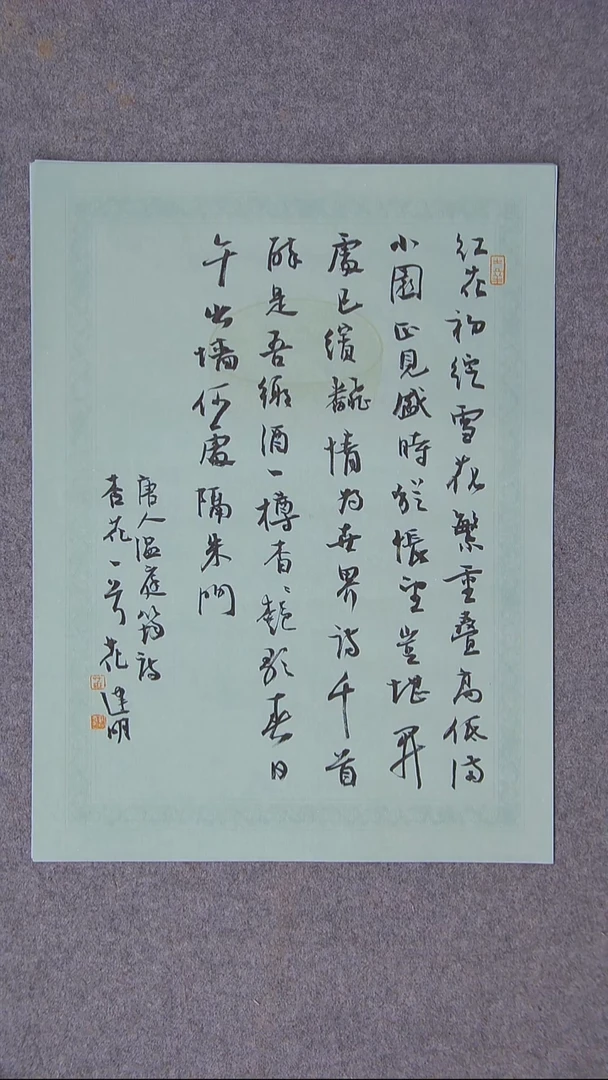 红花初绽雪花繁重叠高低满
小園正見盛時犹悵望豈堪開
處已繽翻情为世界诗千首
醉是吾鄉酒一樽杳〻艷歌春日
午出墙何處隔朱門
唐人温庭筠诗
杏花一首 建明